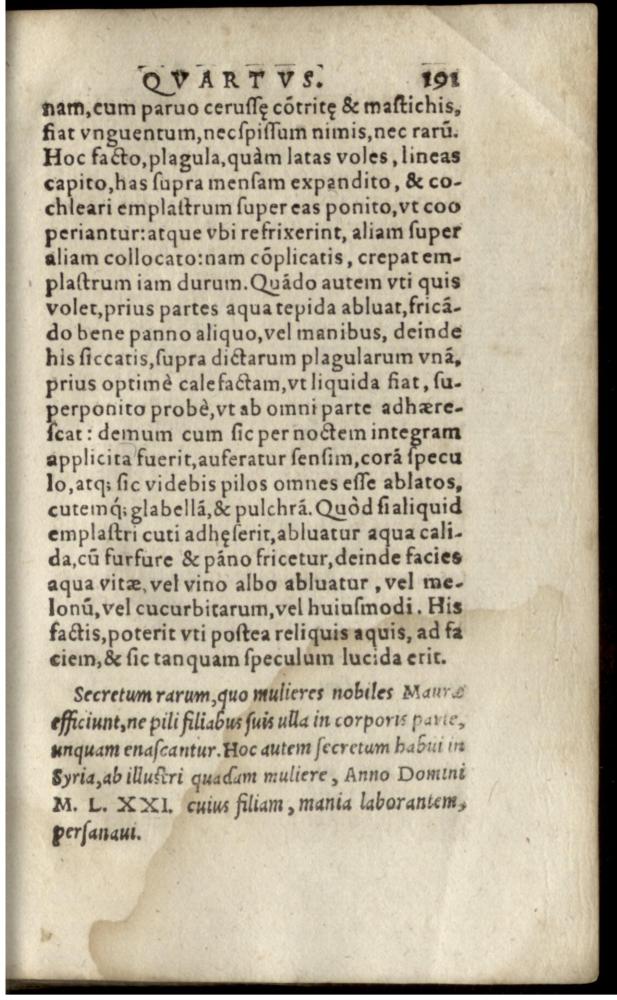 QVARTVS. 191
nam,cum paruo ceruſſę cõtritę & maſtichis,
fiat vnguentum,nec ſpiſſum nimis,nec rarū.
Hoc facto,plagula,quàm latas voles, lineas
capito,has ſupra menſam expandito, & co-
chleari emplaſtrum ſuper eas ponito,vt coo
periantur:atque vbi refrixerint, aliam ſuper
aliam collocato:nam cõplicatis, crepat em-
plaſtrum iam durum. Quādo autem vti quis
volet,prius partes aqua tepida abluat,fricā-
do bene panno aliquo,vel manibus, deinde
his ſiccatis,ſupra dictarum plagularum vnā,
prius optimè calefactam,vt liquida fiat, ſu-
perponito probè,vt ab omni parte adhære-
ſcat : demum cum ſic per noctem integram
applicita fuerit,auferatur ſenſim,corā ſpecu
lo,atq; ſic videbis pilos omnes eſſe ablatos,
cutemq́; glabellā,& pulchrā. Quòd ſi aliquid
emplaſtri cuti adhęſerit,abluatur aqua cali-
da,cū furfure & pāno fricetur,deinde facies
aqua vitæ, vel vino albo abluatur , vel me-
lonū,vel cucurbitarum,vel huiuſmodi. His
factis,poterit vti poſtea reliquis aquis, ad fa
ciem,& ſic tanquam ſpeculum lucida erit.
Secretum rarum,quo mulieres nobiles Mauræ
efficiunt,ne pili filiabus ſuis ulla in corporis parte,
unquam enaſcantur. Hoc autem ſecretum habui in
Syria,ab illuſtri quadam muliere, Anno Domini
M. L. XXI. cuius filiam, mania laborantem,
perſanaui.